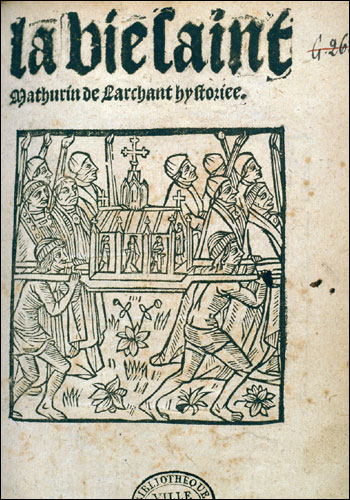 la vie saint
Mathurin de Larchant hystoriee.
BIBLIOTHEQUE
VILLE